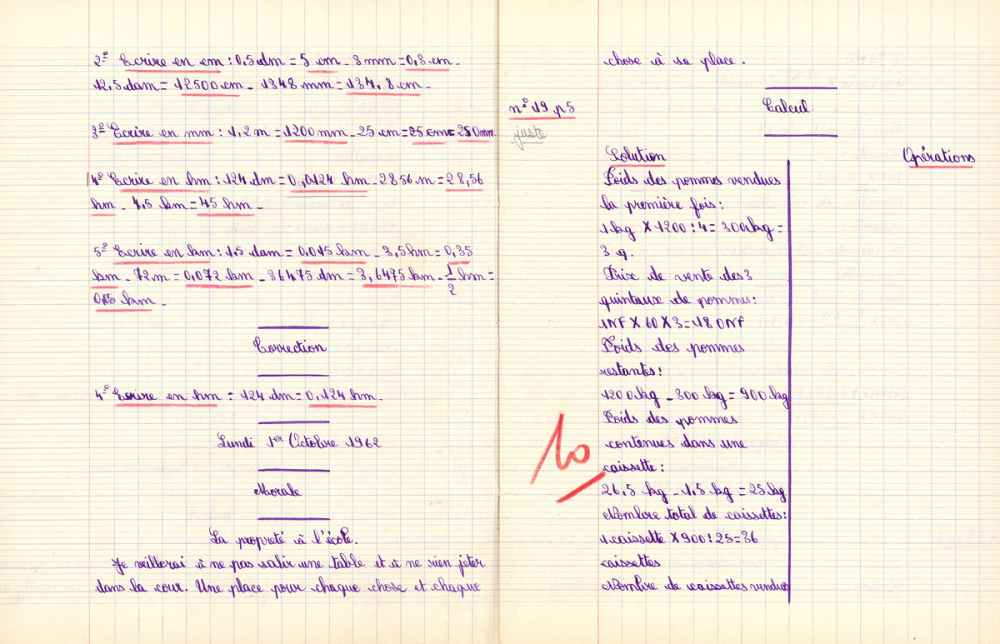 2º Ecrire en cm : 0,5 dm = 5 cm - 3 mm = 0,3 cm -
12,5 dam = 12500 cm - 1348 mm = 134,8 cm -
3º Ecrire en mm : 1,2 m = 1200 mm - 25 cm = 25 cm = 250 mm
4º Ecrire en hm : 124 dm = 0,0124 hm - 2856 m = 28,56
hm - 4,5 km = 45 hm -
5º Ecrire en km : 1,5 dam = 0,015 km - 3,5 hm = 0,35
km - 72 m = 0,072 km - 36475 dm = 3,6475 km - 1/2 hm =
0,05 km -
Correction
4º Ecrire en hm = 124 dm = 0,124 hm -
Lundi 1er Octobre 1962
Morale
La propreté à l'école.
Je veillerai à ne pas salir une table et à ne rien jeter
dans la cour. Une place pour chaque chose et chaque
chose à sa place.
Calcul
nº 19 p5
juste
Solution
Opérations
Poids des pommes vendues
la première fois :
1 kg X 1200 : 4 = 300 kg =
3 q.
Prix de vente des 3
quintaux de pommes :
1NF X 60 X 3 = 180 NF
Poids des pommes
restantes :
1200 kg - 300 kg = 900 kg
Poids des pommes
contenues dans une
caissette :
26,5 kg - 1,5 kg = 25 kg
Nombre total de caissettes :
1 caissette X 900 : 25 = 36
caissettes
Nombre de caissettes vendues
10